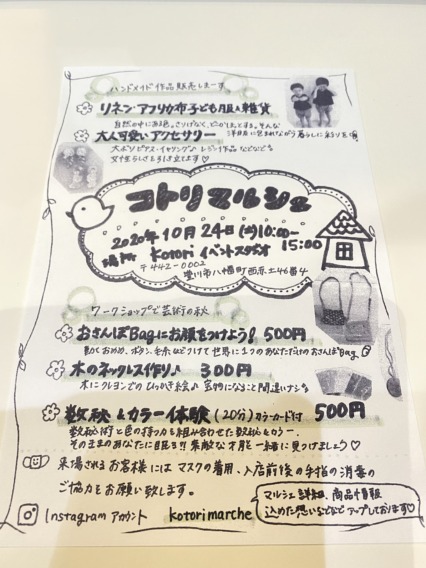 ハンドメイド作品販売します。
リネン・アフリカ布子ども服&雑貨
大人可愛いアクセサリー
大ぶりピアス・イヤリング♪レジン作品などなども
女性らしさを引き立てます♡
コトリマルシェ
2020年10月24日(土)10:00〜15:00
場所 Kotori イベントスタジオ
〒442-0002
豊川市八幡町西赤土46番4
ワークショップで芸術の秋
おさんぽBagにお顔をつけよう! 500円
動くおめめ、ボタン、毛糸などつけて世界に1つのあなただけのおさんぽBag
木のネックレス作り♪ 300円
木にクレヨンでのひっかき絵♪宝物になること間違いナシ
数秘&カラー体験(20分)カラーカード付 500円
数秘術と色の持つ力を組み合わせた数秘&カラー
そのままのあなたに眠る!!素敵な才能を一緒に見つけましょう♡
来場されるお客様にはマスクの着用、入店前後の手指の消毒の
ご協力をお願い致します。
Instagram アカウント kotorimarche
マルシェ詳細、商品情報
込めた想いなどなどアップしております♡